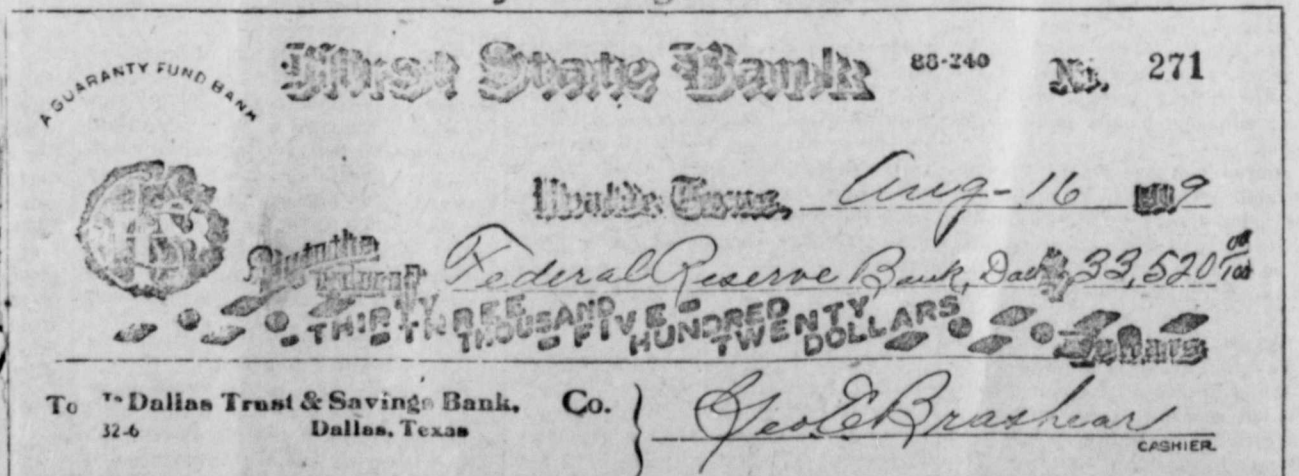 A GUARANTY FUND BANK
First State Bank 88-240 No. 271
Uvalde, Texas, Aug-16 1919
Pay to the order of Federal Reserve Bank, Dallas $33,520 00/100
THIRTY THREE THOUSAND FIVE HUNDRED TWENTY DOLLARS
Dollars
To Dallas Trust & Savings Bank. Co.
32-6 Dallas, Texas
Geo E Brashear
CASHIER